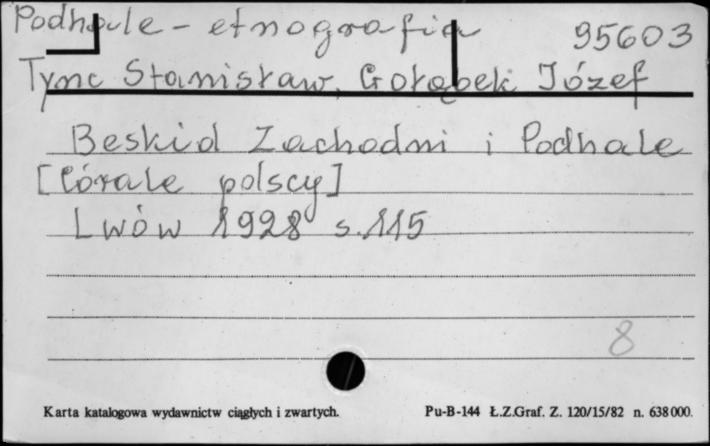 Podhale - etnografia 95603
Tync Stanisław, Gołąbek Józef
Beskid Zachodni i Podhale
[Górale polscy]
Lwów 1928 s. 115
8
Karta katalogowa wydawnictw ciągłych i zwartych. Pu-B-144 Ł.Z.Graf. Z. 120/15/82 n. 638000.